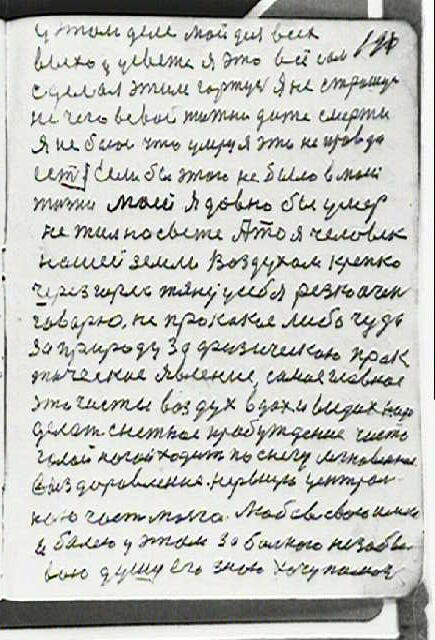 у этом деле мой для всех
выход у цвете Я это всё сам
сделал этим горжусь Я не страшусь
не чего в евой жизни даже смерти
Я не боюс что умру я это не правда
ест Если бы этого не было в моей
жизни моей Я довно бы умер
не жил на свете А то я человек
нашей земле воздухом крепко
через горло тяну у себя резко очен
говарю, не про какое либо чудо
За природу За физическою прак
тическое явление, самое главное
это чисты воздух вдох и выдох надо
делат снежное пробуждение чисто
голой ногой ходит по снегу мгновенное
выздаравление. нервную централ
ною част мозга. Любов свою имею
и болею у этом за больного незабы
вою душу его знаю хочу помоч